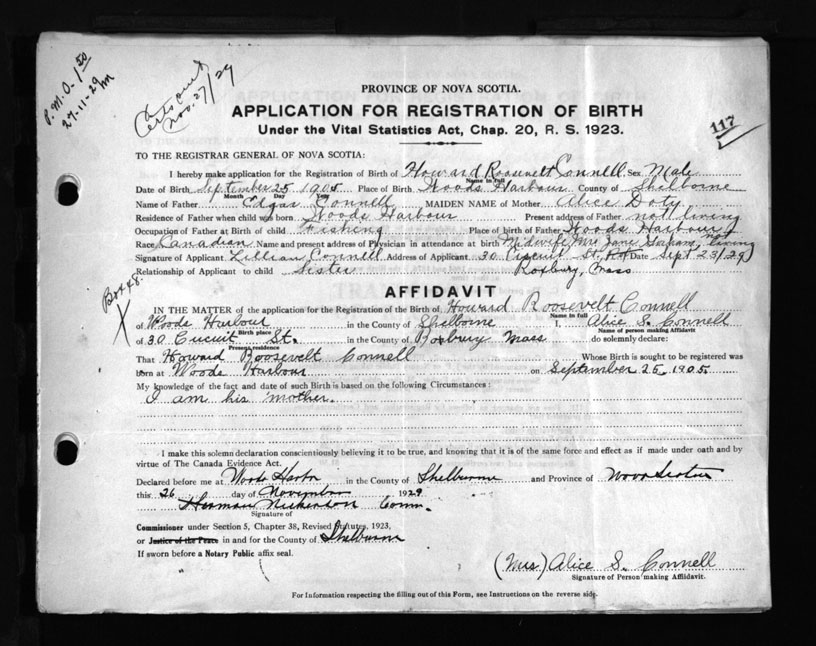 P.M.O. 1.50
27-11-29
Nov. 27/29
117
PROVINCE OF NOVA SCOTIA.
APPLICATION FOR REGISTRATION OF BIRTH
Under the Vital Statistics Act, Chap. 20, R. S. 1923.
TO THE REGISTRAR GENERAL OF NOVA SCOTIA:
I hereby make application for the Registration of Birth of Howard Roosevelt Connell Sex Male
Name in Full
Date of Birth September 25 1905 Place of Birth Woods Harbour County of Shelborne
Month Day Year
Name of Father Edgar Connell MAIDEN NAME of Mother Alice Doty
Residence of Father when child was born Woods Harbour Present address of Father not living
Occupation of Father at Birth of child Fishing Place of birth of Father Woods Harbour
Race Canadian Name and present address of Physician in attendance at birth Midwife Mrs Jane (not living)
Signature of Applicant Lillian Connell Address of Applicant 30 St. Date Sept 23/29
Relationship of Applicant to child Sister Roxbury, Mass
Box 48.
X
AFFIDAVIT
IN THE MATTER of the application for the Registration of the Birth of Howard Roosevelt Connell
Name in full
of Woods Harbour in the County of Shelborne I, Alice S. Connell
Birth place Name of person making Affidavit
of 30 St. in the County of Roxbury Mass do solemnly declare:
Present residence
That Howard Roosevelt Connell Whose Birth is sought to be registered was
born at Woods Harbour on September 25, 1905
My knowledge of the fact and date of such Birth is based on the following Circumstances:
I am his mother.
I make this solemn declaration conscientiously believing it to be true, and knowing that it is of the same force and effect as if made under oath and by
virtue of The Canada Evidence Act.
Declared before me at Woods Harbor in the County of Shelburne and Province of Nova Scotia
this 26 day of November 1929
Herman Nickerson Comm.
Signature of
Commissioner under Section 5, Chapter 38, Revised Statutes, 1923,
or Justice of the Peace in and for the County of Shelburne
If sworn before a Notary Public affix seal.
(Mrs.) Alice S. Connell
Signature of Person making Affidavit.
For Information respecting the filling out of this Form, see Instructions on the reverse side.